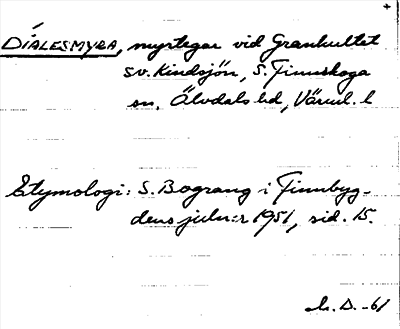 DÍALESMYRA, myrtegar vid Grankullet
sv. Kindsjön, S. Finnskoga
sn. Älvdals hd, Värml. l
Etymologi: S. Bograng i Finnbyg-
dens julnr 1951, sid. 15.
D. -61